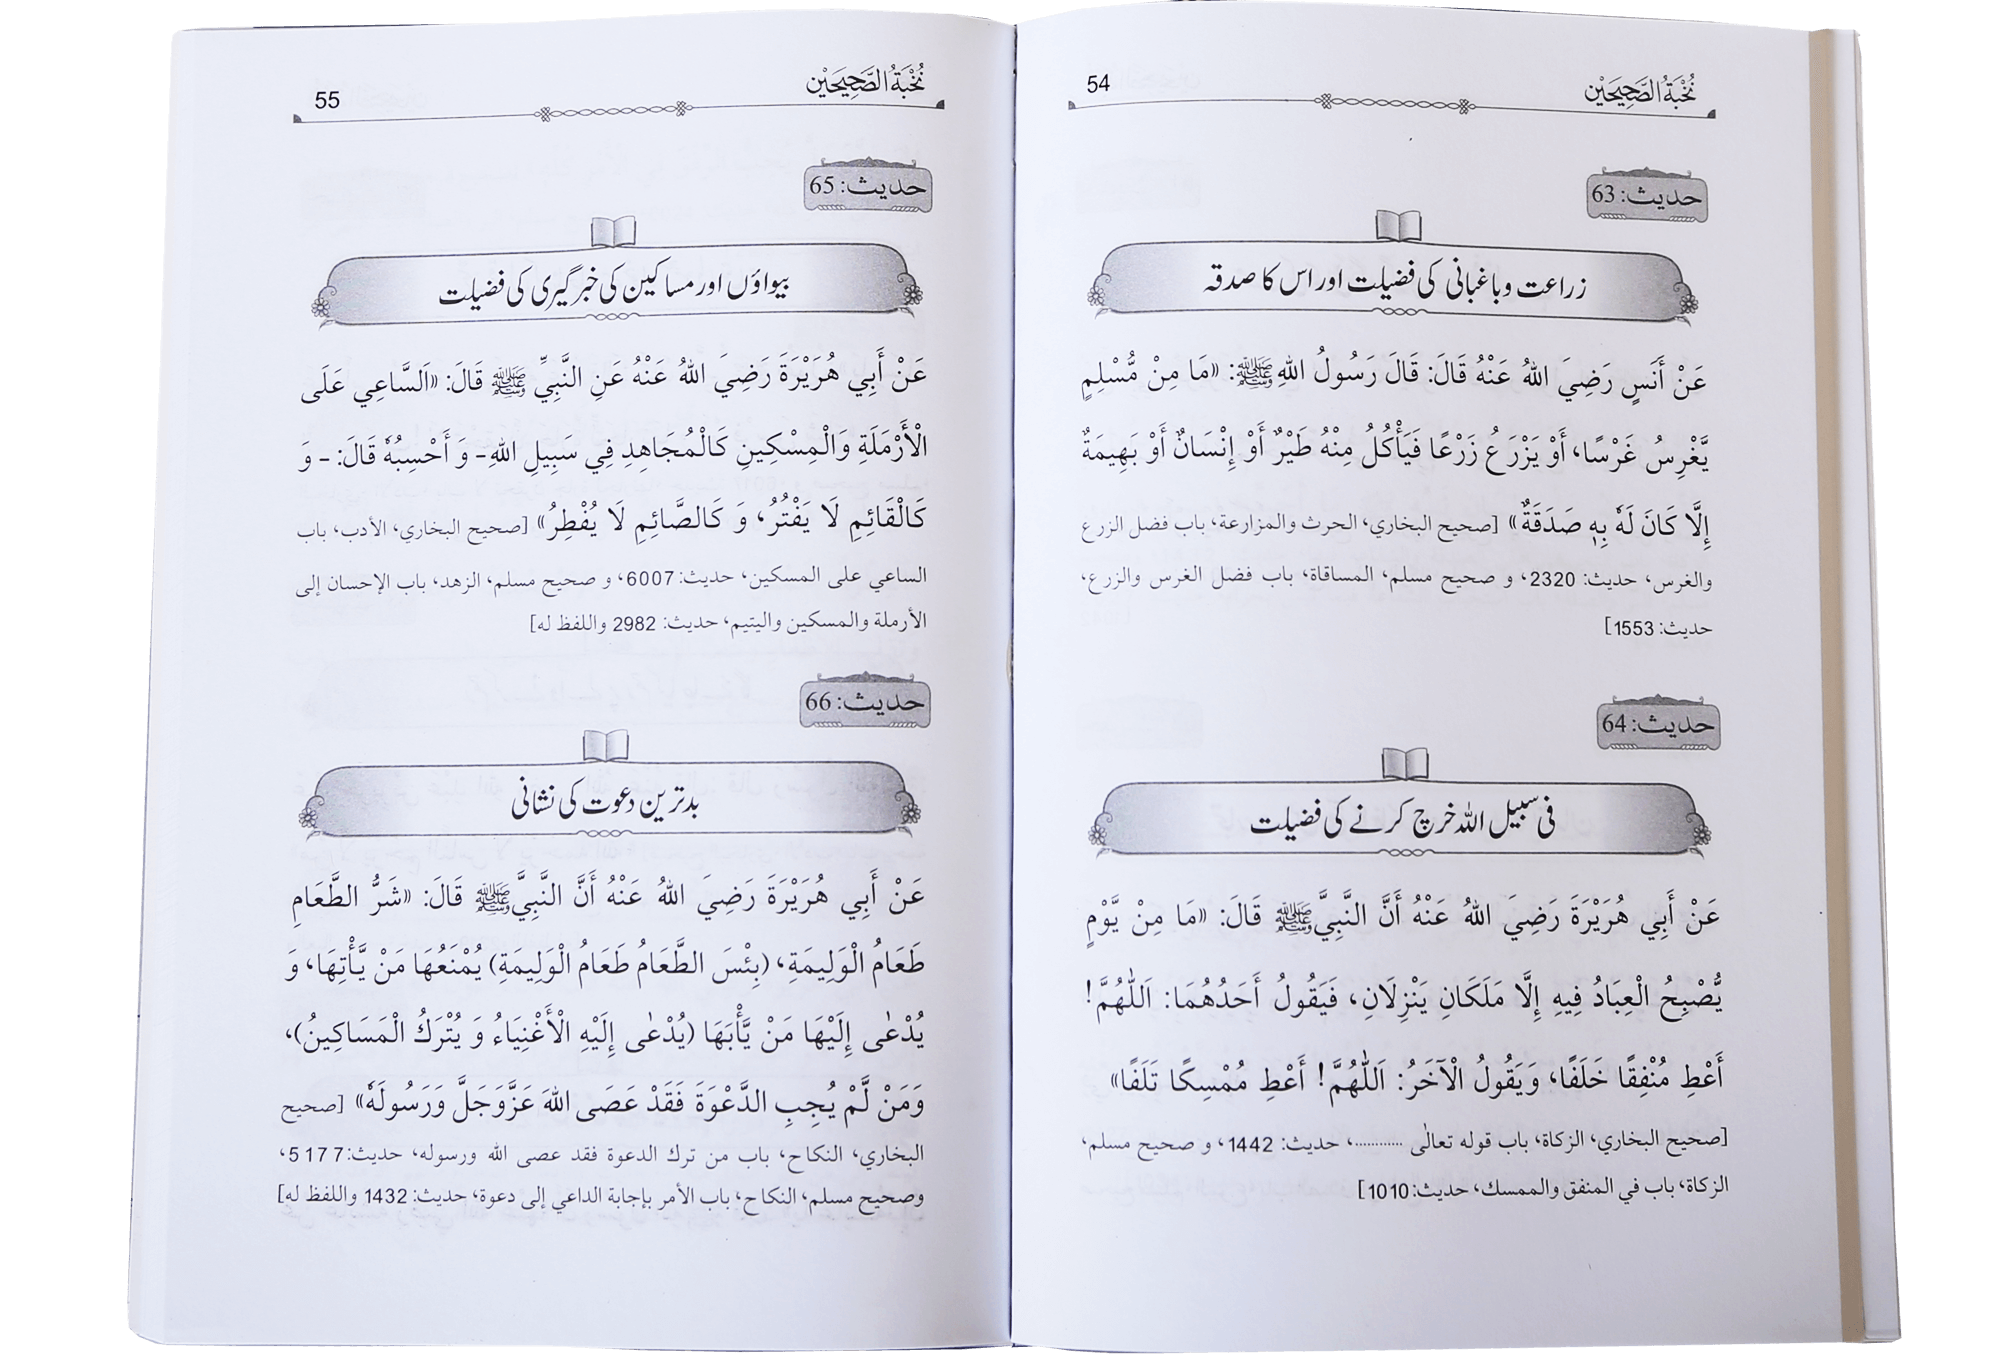 نُخْبَةُ الصَّحِيحَيْن
54
حدیث: 63
زراعت وباغبانی کی فضیلت اور اس کا صدقہ
عَنْ أَنَسٍ رَضِيَ اللهُ عَنْهُ قَالَ: قَالَ رَسُولُ اللهِ ﷺ: «مَا مِنْ مُّسْلِمٍ
يَّغْرِسُ غَرْسًا، أَوْ يَزْرَعُ زَرْعًا فَيَأْكُلُ مِنْهُ طَيْرٌ أَوْ إِنْسَانٌ أَوْ بَهِيمَةٌ
إِلَّا كَانَ لَهٗ بِهٖ صَدَقَةٌ» [صحيح البخاري، الحرث والمزارعة، باب فضل الزرع
والغرس، حديث: 2320، و صحيح مسلم، المساقاة، باب فضل الغرس والزرع،
حديث: 1553]
حدیث: 64
فی سبیل اللہ خرچ کرنے کی فضیلت
عَنْ أَبِي هُرَيْرَةَ رَضِيَ اللهُ عَنْهُ أَنَّ النَّبِيَّ ﷺ قَالَ: «مَا مِنْ يَّوْمٍ
يُّصْبِحُ الْعِبَادُ فِيهِ إِلَّا مَلَكَانِ يَنْزِلَانِ، فَيَقُولُ أَحَدُهُمَا: اَللّٰهُمَّ!
أَعْطِ مُنْفِقًا خَلَفًا، وَيَقُولُ الْآخَرُ: اَللّٰهُمَّ! أَعْطِ مُمْسِكًا تَلَفًا»
[صحيح البخاري، الزكاة، باب قوله تعالٰى ...........، حديث: 1442، و صحيح مسلم،
الزكاة، باب في المنفق والممسك، حديث: 1010]
نُخْبَةُ الصَّحِيحَيْن
55
حدیث: 65
بیواؤں اور مساکین کی خبرگیری کی فضیلت
عَنْ أَبِي هُرَيْرَةَ رَضِيَ اللهُ عَنْهُ عَنِ النَّبِيِّ ﷺ قَالَ: «اَلسَّاعِي عَلَى
الْأَرْمَلَةِ وَالْمِسْكِينِ كَالْمُجَاهِدِ فِي سَبِيلِ اللهِ- وَ أَحْسِبُهٗ قَالَ: - وَ
كَالْقَائِمِ لَا يَفْتُرُ، وَ كَالصَّائِمِ لَا يُفْطِرُ» [صحيح البخاري، الأدب، باب
الساعي على المسكين، حديث: 6007، و صحيح مسلم، الزهد، باب الإحسان إلى
الأرملة والمسكين واليتيم، حديث: 2982 واللفظ له]
حدیث: 66
بدترین دعوت کی نشانی
عَنْ أَبِي هُرَيْرَةَ رَضِيَ اللهُ عَنْهُ أَنَّ النَّبِيَّ ﷺ قَالَ: «شَرُّ الطَّعَامِ
طَعَامُ الْوَلِيمَةِ، (بِئْسَ الطَّعَامُ طَعَامُ الْوَلِيمَةِ) يُمْنَعُهَا مَنْ يَّأْتِهَا، وَ
يُدْعٰى إِلَيْهَا مَنْ يَّأْبَهَا (يُدْعٰى إِلَيْهِ الْأَغْنِيَاءُ وَ يُتْرَكُ الْمَسَاكِينُ)،
وَمَنْ لَّمْ يُجِبِ الدَّعْوَةَ فَقَدْ عَصَى اللهَ عَزَّوَجَلَّ وَرَسُولَهٗ» [صحيح
البخاري، النكاح، باب من ترك الدعوة فقد عصى الله ورسوله، حديث: 5177،
وصحيح مسلم، النكاح، باب الأمر بإجابة الداعي إلى دعوة، حديث: 1432 واللفظ له]